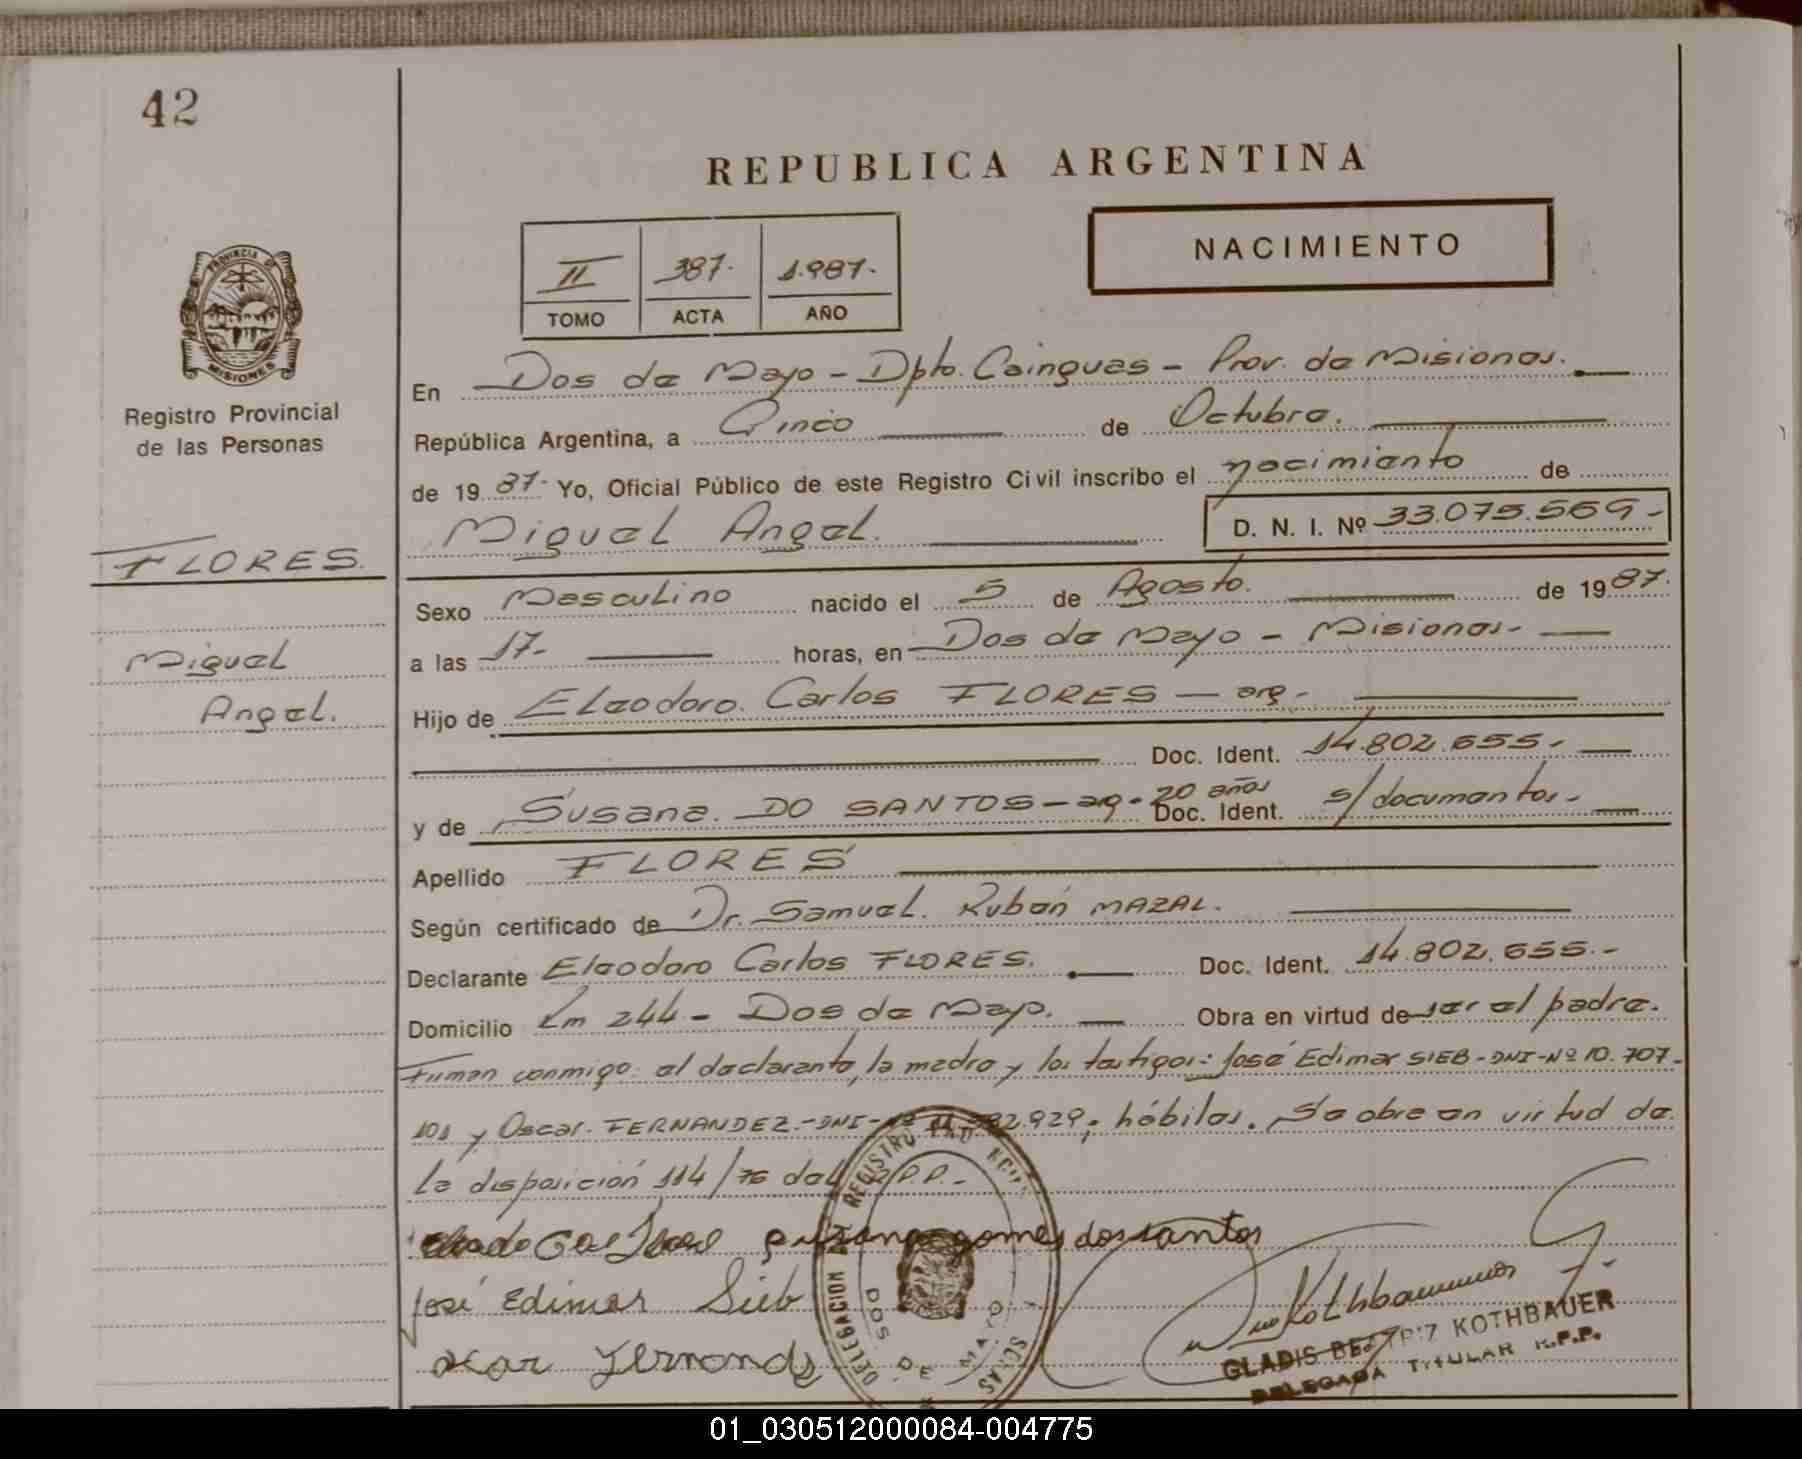 42
REPUBLICA ARGENTINA
PROVINCIA DE
MISIONES
Registro Provincial
de las Personas
II 387- 1.987-
TOMO ACTA AÑO
NACIMIENTO
En Dos de Mayo - Dpto. Cainguas - Prov. de Misiones.
República Argentina, a Cinco de Octubre.
de 19 87- Yo, Oficial Público de este Registro Civil inscribo el nacimiento de
Miguel Angel. D. N. I. Nº 33.075.569-
FLORES.
Miguel
Angel.
Sexo Masculino nacido el 5 de Agosto. de 19 87.
a las 17- horas, en Dos de Mayo - Misiones-
Hijo de Eleodoro Carlos FLORES - arg-
Doc. Ident. 14.802.655.-
y de Susana DO SANTOS - arg - 20 años Doc. Ident. s/documentos-
Apellido FLORES
Según certificado de Dr. Samuel Rubén MAZAL.
Declarante Eleodoro Carlos FLORES. Doc. Ident. 14.802.655.-
Domicilio Km 244 - Dos de Mayo. Obra en virtud de ser el padre.
Firman conmigo: el declarante, la madre y los testigos: José Edimar SIEB - DNI - Nº 10.707.
101 y Oscar FERNANDEZ.- DNI - Nº 92.929; hábiles. Se obra en virtud de
la disposición 114/76 del R.P.P.-
gomes dos santos
José Edimar Sieb
oscar fernandz
Kothbauer
DELEGACION REGISTRO
DOS DE MAYO
GLADIS BEATRIZ KOTHBAUER
DELEGADA TITULAR R.P.P.
01_030512000084-004775